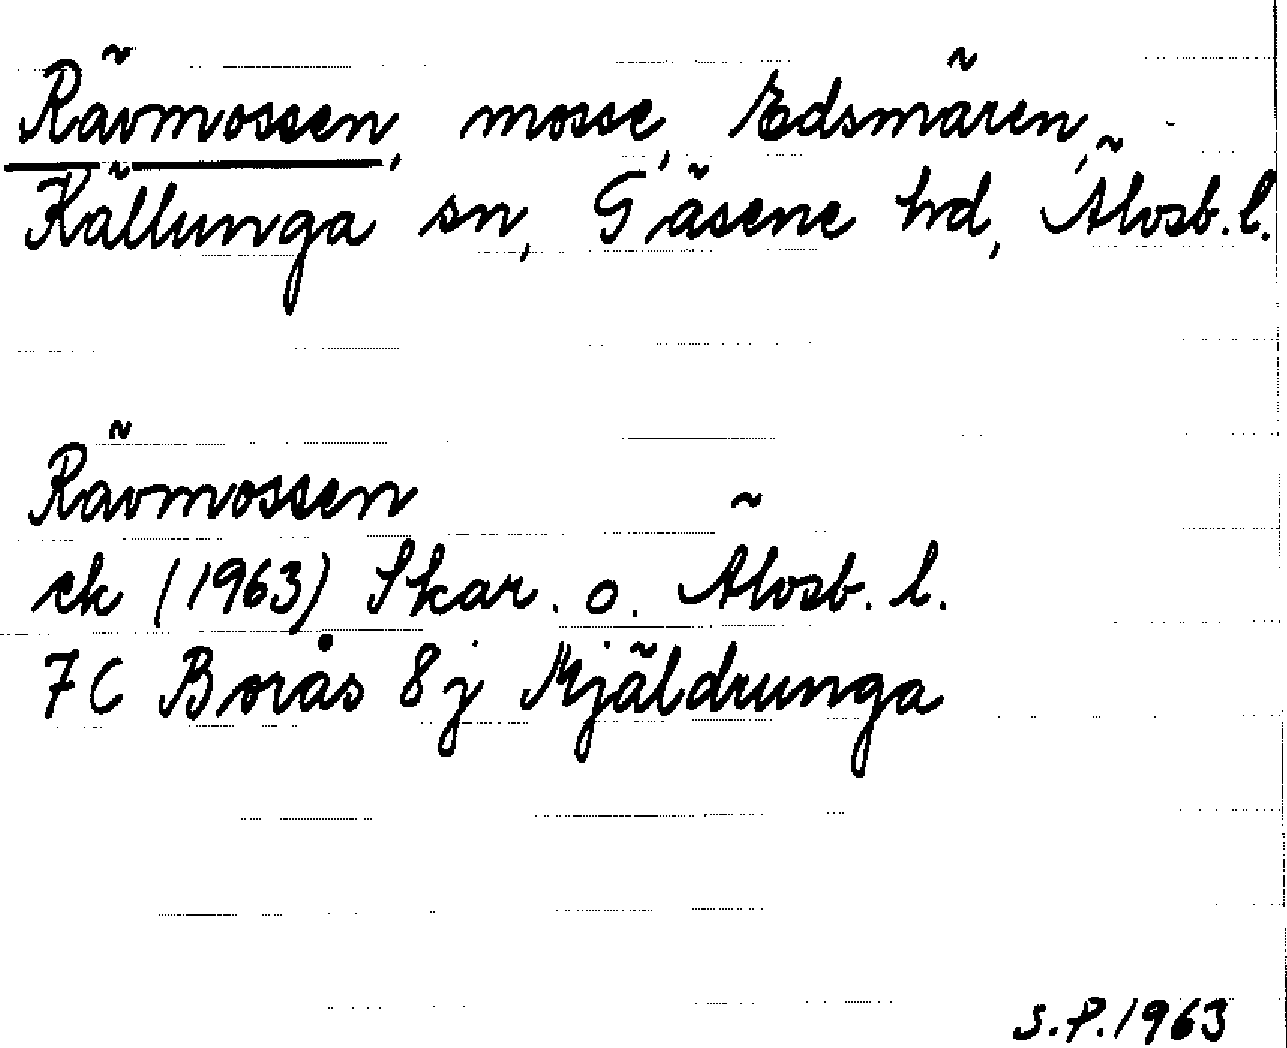 Rävmossen, mosse, Edsmären,
Källunga sn, Gäsene hd, Älvsb. l.
Rävmossen
ek (1963) Skar. o. Älvsb. l.
7C Borås 8j Mjäldrunga
S.P. 1963